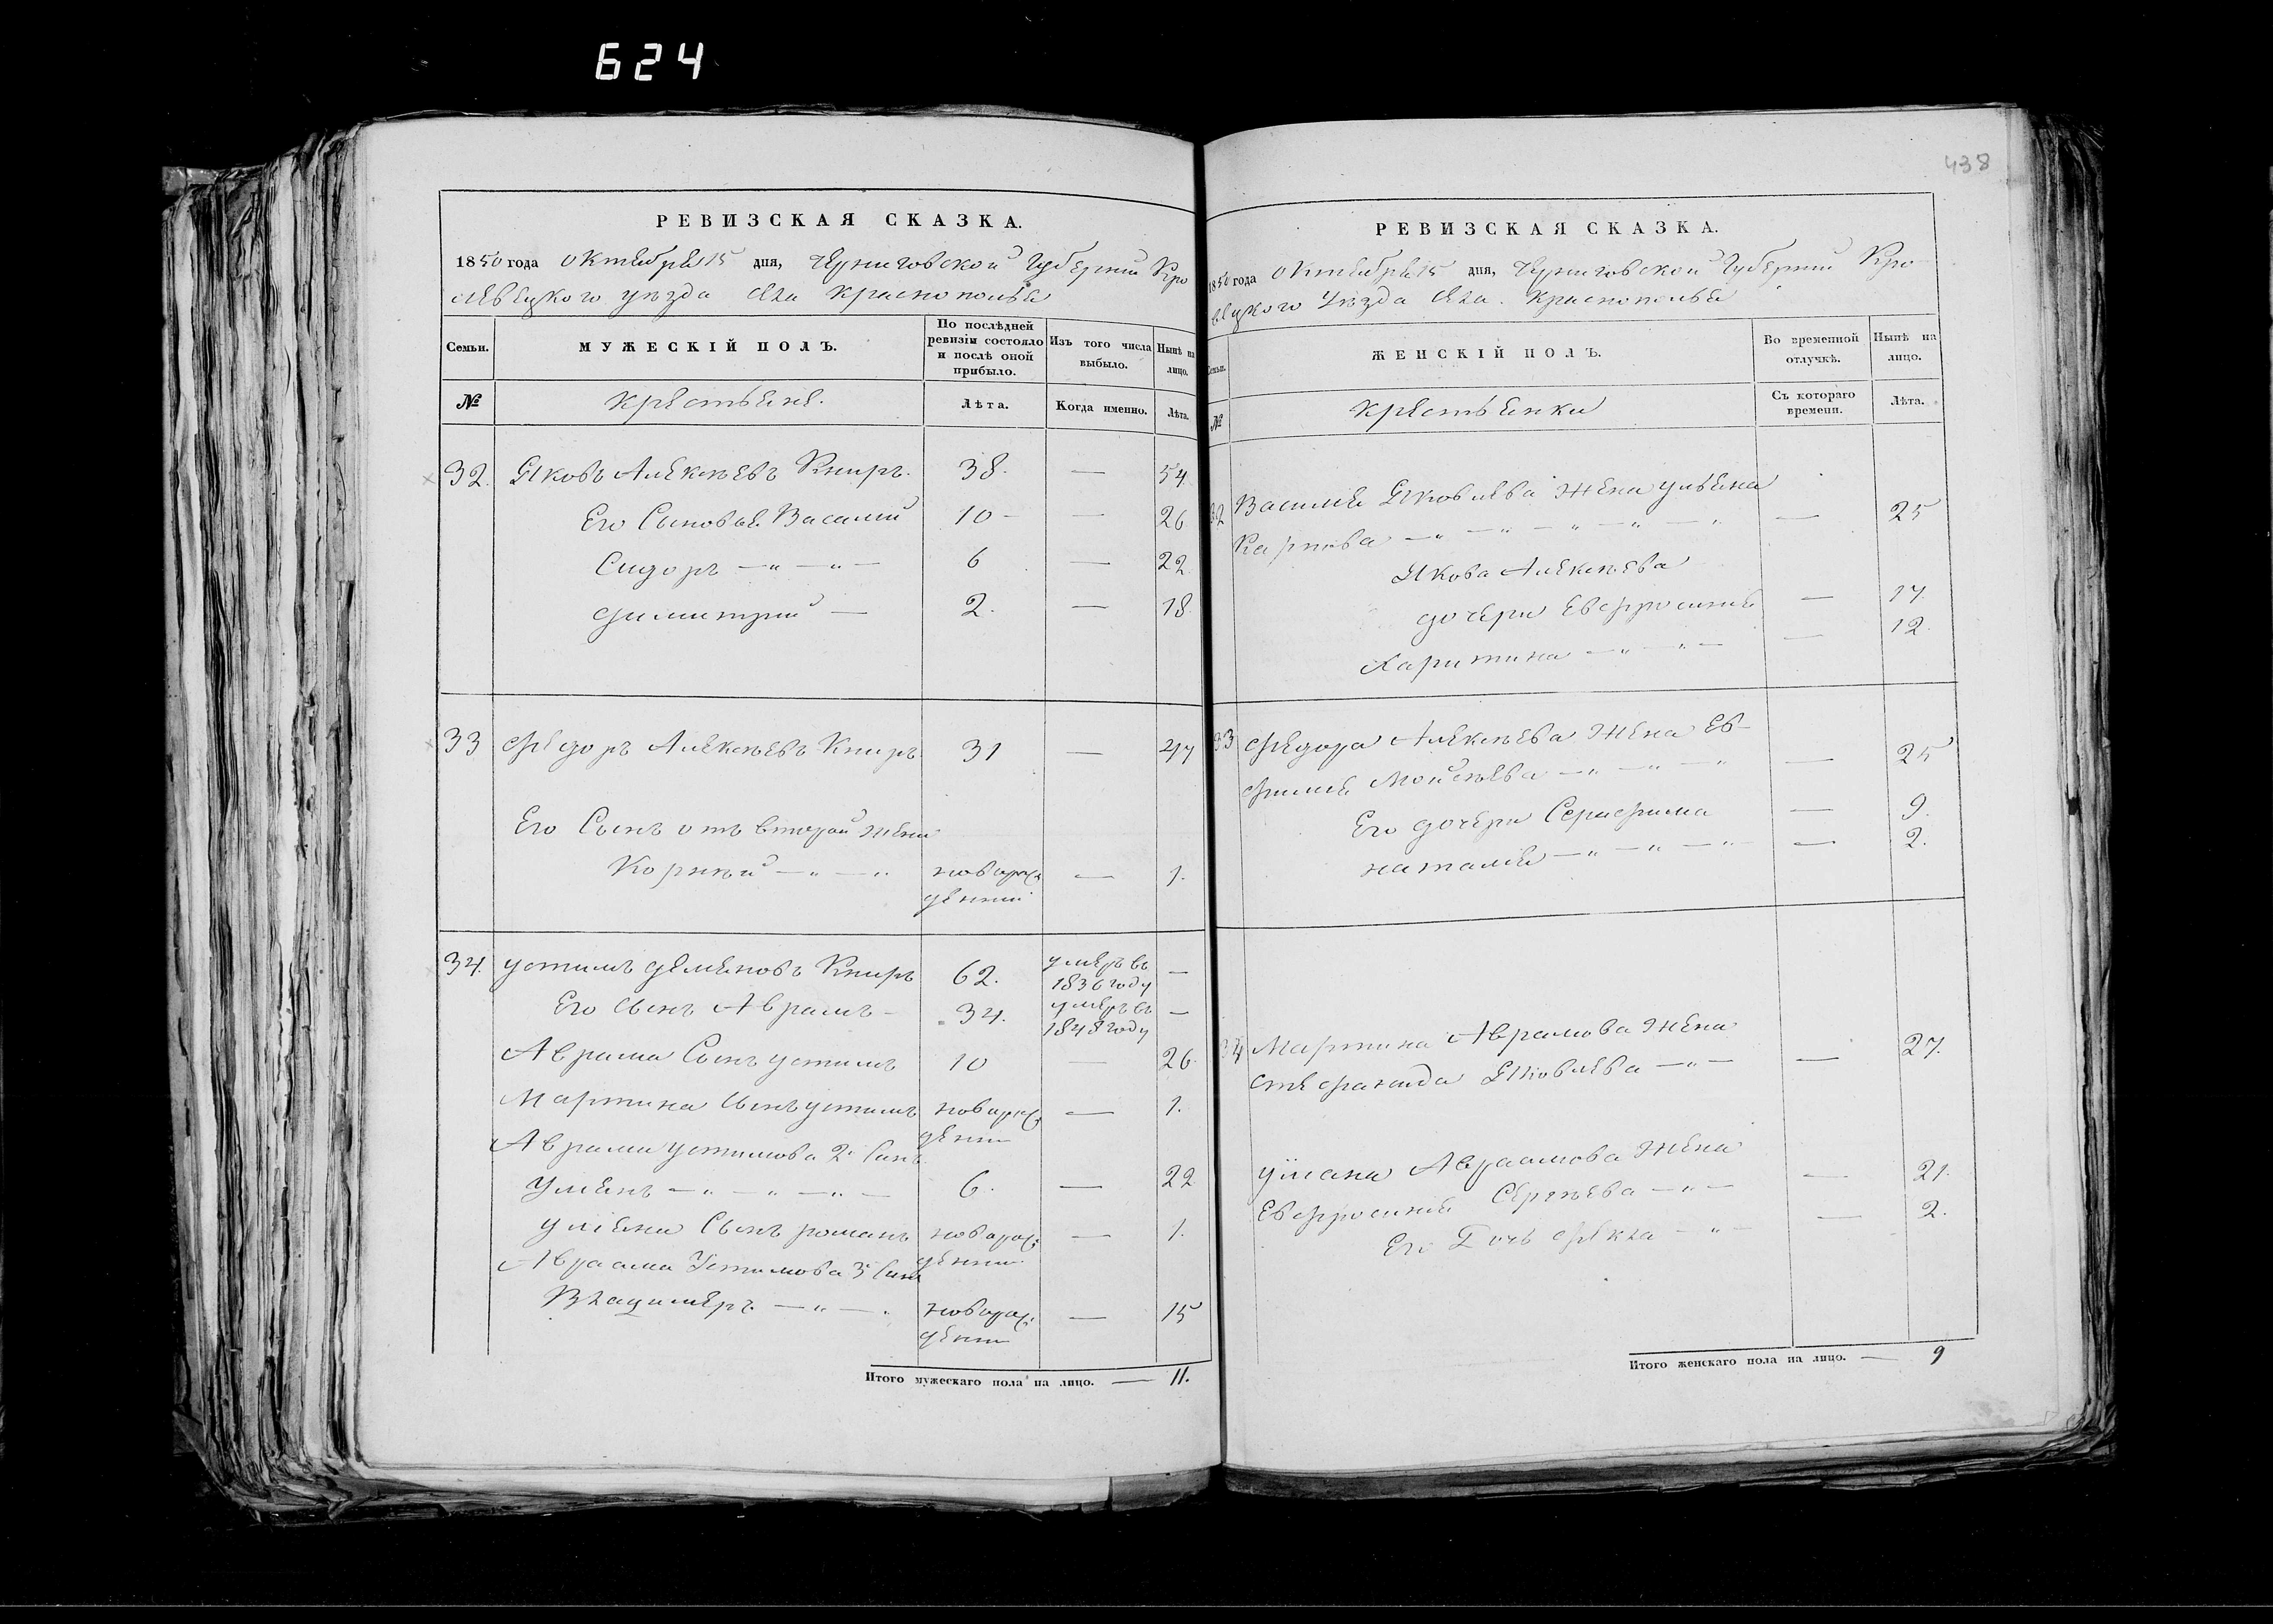 624
438
РЕВИЗСКАЯ СКАЗКА.
1850 года Октября 15 дня, Черниговской Губерніи Кро
левецкого уѣзда села Краснополья
Семьи.
МУЖЕСКІЙ ПОЛЪ.
По послѣдней ревизіи состояло и послѣ оной прибыло.
Изъ того числа выбыло.
Нынѣ на лицо.
№
Крестьяне.
Лѣта.
Когда именно.
Лѣта.
32. Яковъ Алексѣевъ Книръ. 38. — 54
Его Сыновья Василій 10 — — 26
Сидоръ — „ — „ — 6 — 22
Димитрій — 2. — 18
33 Федоръ Алексѣевъ Книръ 31 — 47
Его Сынъ отъ второй жены
Корнѣй — „ — „ новорож — 1.
денный
34. Устимъ Деменовъ Книръ 62. умеръ въ 1836 году —
Его сынъ Аврамъ — 34. умеръ въ 1848 году —
Аврама Сынъ Устимъ 10 — 26.
Мартина сынъ Устимъ новорож — 1.
ден
Аврама Устимова 2й Сынъ
— „ — „ — „ — 6. — 22
Сынъ Романъ новорож: — 1.
Авраама Устимова 3й Сынъ денни
Владимеръ — „ — „ новорож: — 15
ден
Итого мужескаго пола на лицо. — 11.
РЕВИЗСКАЯ СКАЗКА.
1850 года Октября 15 дня, Черниговской Губерніи Кро
вецкого Уѣзда села Краснополья
Семьи.
ЖЕНСКІЙ ПОЛЪ.
Во временной отлучкѣ.
Нынѣ на лицо.
№
Крестьянки
Съ котораго времени.
Лѣта.
32 Василія Яковлева жена Ульяна
Карпова — „ — „ — „ — „ — 25
Якова Алексѣева
дочери Евфросинія — 17
Харитина — „ — „ — — 12.
33 Федора Алексѣева жена Ев-
фимія Мойсѣева — „ — „ — „ — 25
Его дочери Серафима — 9.
Наталія — „ — „ — „ — 2.
34 Мартина Аврамова жена
Стефанида Яковлева — „ — — 27.
Авраамова жена
Евфросинія Сергѣева — „ — — 21.
Его Дочь Фекла — „ — 2.
Итого женскаго пола на лицо. — 9